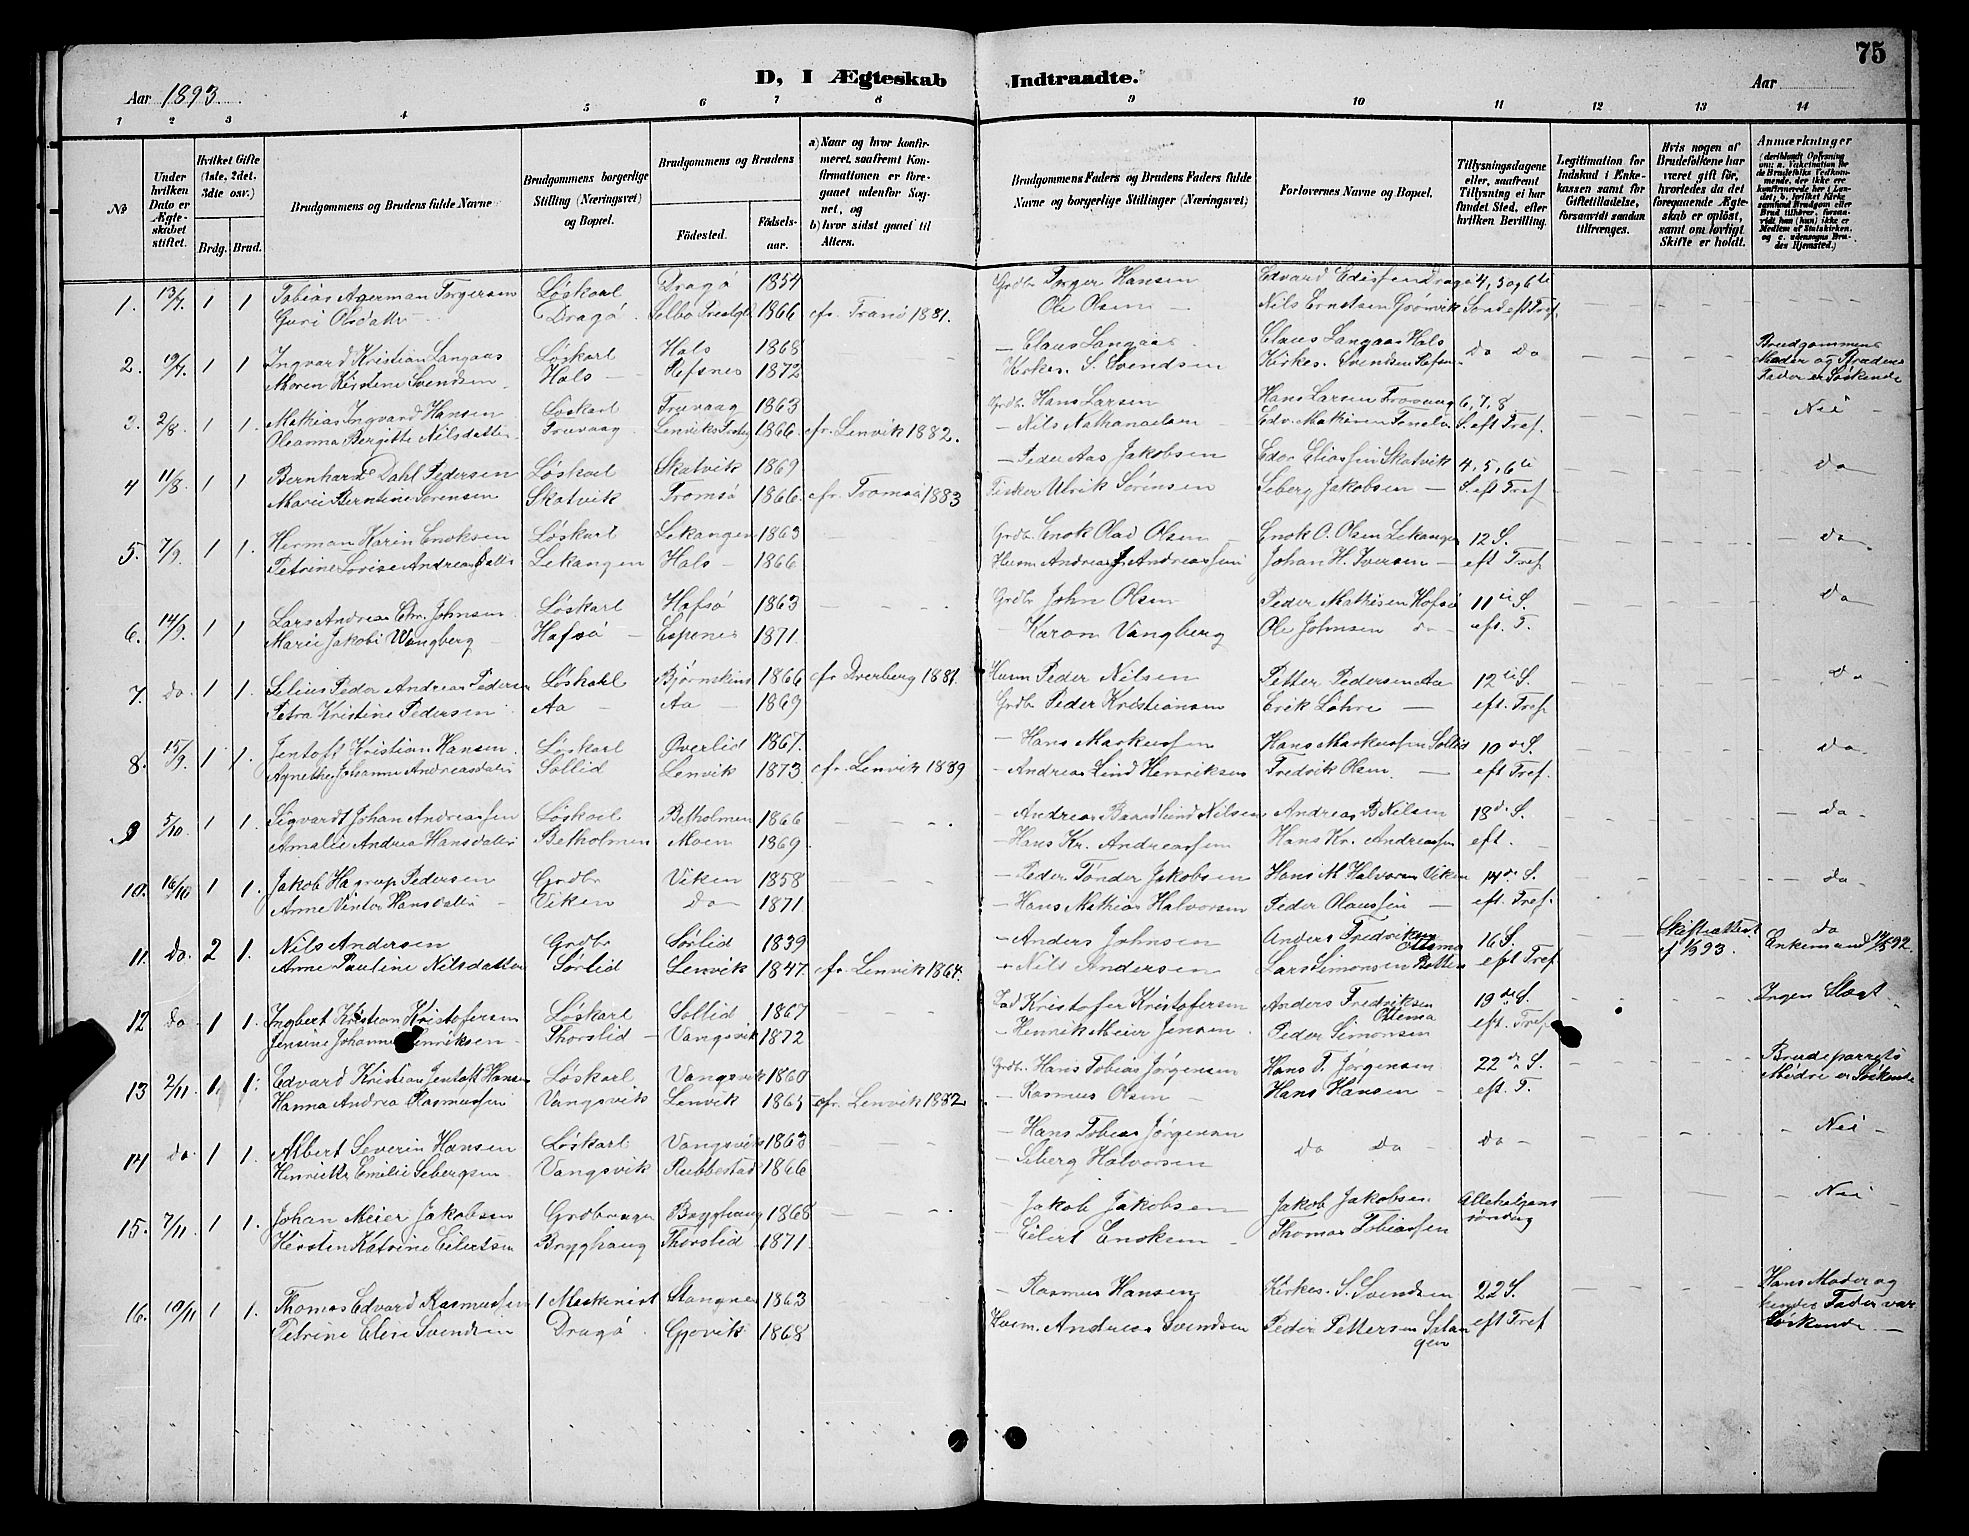 75
D, I Ægteskab Indtraadte.
Aar 1893. Aar
1 2 3 4 5 6 7 8 9 10 11 12 13 14
No
Under hvilken Dato er Ægteskabet stiftet.
Hvilket Gifte (1ste, 2det, 3die osv.)
Brdg. Brud.
Brudgommens og Brudens fulde Navne.
Brudgommens borgerlige Stilling (Næringsvei) og Bopæl.
Brudgommens og Brudens
Fødested. Fødsels-aar.
a) Naar og hvor konfirmeret, saafremt Konfirmationen er foregaaet udenfor Sognet, og
b) hvor sidst gaaet til Alters.
Brudgommens Faders og Brudens Faders fulde Navne og borgerlige Stillinger (Næringsvei)
Forlovernes Navne og Bopæl.
Tillysningsdagene eller, saafremt Tillysning ei har fundet Sted, efter hvilken Bevilling.
Legitimation for Indskud i Ænkekassen samt for Giftetilladelse, forsaavidt saadan tiltrænges.
Hvis nogen af Brudefolkene har været gift før, hvorledes da det foregaaende Ægteskab er opløst, samt om lovligt Skifte er holdt.
Anmærkninger
(deriblandt Oplysning om: a. Vakcination for de Brudefolks Vedkommende, der ikke ere konfirmerede her i Landet; b. hvilket Kirkesamfund Brudgom eller Brud tilhører, forsaavidt han (hun) ikke er Medlem af Statskirken, og c. udensogns Brudes Hjemsted.)
1. 13/7 1 1 Tobias Agerman Torgersen Løskarl Dragø 1854 Grdbr Torger Hansen Edvard Edissen Dragø 4, 5 og 6te
Guri Olsdatter Dragø. Selbo Prestgl 1866 cfr. Tranø 1881. Ole Olsen Nils Ernstsen Grønvik Sønd eft Tref.
2. 19/7 1 1 Ingvard Kristian Langaas Løskarl Hals 1868 Claus Langaas Claus Langaas Hals do do Brudgommens
Maren Kirstine Svendsen Hals Refsnes 1872 Kirkes. S. Svendsen Kirkes. Svendsen Moder og Brudens
Fader er Søskende
3. 2/8 1 1. Mathias Ingvard Hansen Løskarl Truvaag 1863 Grdbr Hans Larsen Hans Larsen Trovaag 6, 7, 8. Nei
Oleanna Bergitte Nilsdatter Truvaag Lenviks 1866 cfr. Lenvik 1882. Nils Nathanaelsen Edv. Mathisen S. eft Tref.
4 11/8 1 1 Bernhard Dahl Pedersen Løskarl Skatvik 1869 Peder Aas Jakobsen Edor Eliassen Skatvik 4, 5, 6te do
Marie Berntine Sørensen Skatvik Tromsø 1866 cfr. Tromsø 1883 Fisker Ulrik Sørensen Seberg Jakobsen S. eft Tref
5. 7/9 1 1. Herman Karin Enoksen Løskarl Lekangen 1863 Grdbr Enok Olad Olsen Enok O. Olsen Lekangen 12 S. do
Petrine Lovise Andreasdatter Lekangen Hals 1866 Husm Andreas J Andreassen Johan H. Iversen eft Tref
6. 14/9 1 1 Lars Andreas Chr. Johnsen Løskarl Hofsø 1863 Grdbr John Olsen Peder Mathisen Hofsø 11te S. do
Marie Jakobi Wangberg Hafsø Espenes 1871. Karon Vangberg Ole Johnsen do eft. T.
7. do 1 1. Selius Peder Andreas Pedersen Løskarl Bjørnskind 1866 cfr Dverberg 1881. Husm Peder Nilsen Petter Pedersen Aa 12te S. do
Petra Kristine Pedersen Aa Aa 1869 Grdbr Peder Kristiansen Erik Løhre eft. Tref
8. 15/9 1 1. Jentoft Kristian Hansen Løskarl Øverlid 1867. Hans Markussen Hans Markussen Sollid 10de S. do
Agnethe Johanne Andreasdatter Sollid Lenvik 1873 cfr. Lenvik 1889 Andreas Lind Henriksen Fredrik Olsen eft Tref.
9 5/10. 1 1. Sigvardt Johan Andreassen Løskarl Betholmen 1866 Andreas Baardlund Nilsen Andreas B Nilsen 18de S. do
Amalie Andrea Hansdatter Betholmen Moen 1869 Hans Kr. Andreassen Hans Kr. Andreassen eft.
10. 16/10 1 1. Jakob Hagrup Pedersen Grdbr Viken 1858 Peder Tønder Jakobsen Hans M Halvorsen Viken 14de S. do
Anne Hansdatter Viken do 1871 Hans Mathias Halvorsen Peder Olaussen eft. Tref.
11. do 2 1. Nils Andersen Grdbr Sørlid 1839 Anders Johnsen Anders Fredriksen Ottema 16 S. Skifteattest do
Anne Pauline Nilsdatter Sørlid Lenvik 1847. cfr. Lenvik 1864. Nils Andersen Lars Simonsen eft Tref Enkemand
12 do 1 1. Ingbert Kristian Kristofersen Løskarl Sollid 1867 Kristofer Kristofersen Anders Fredriksen Ottema 19de S. Ingen Slægt
Jensine Johanne Henriksen Thorslid Vangsvik 1872 Henrik Meier Jensen Peder Simonsen eft. Tref
13 2/11 1. 1. Edvard Kristian Jentoft Hansen Løskarl Vangsvik 1860 Grdbr. Hans Tobias Jørgensen Hans T. Jørgensen 22de S. Brudeparrets
Hanna Andrea Rasmussen Vangsvik Lenvik 1865 cfr. Lenvik 1882 Rasmus Olsen Hans Hansen eft. T. Mødre er Søskende
14 do 1 1. Albert Severin Hansen Løskarl Vangsvik 1863 Hans Tobias Jørgensen do do do Nei
Henriette Emilie Sebergsen Vangsvik Rubbestad 1866 Seberg Halvorsen
15. 7/11 1 1. Johan Meier Jakobsen Grdbruger Brygghaug 1868 Jakob Jakobsen Jakob Jakobsen Allehelgens Nei
Kirsten Katrine Eilertsen Brygghaug Thorslid 1871. Eilert Enoksen Thomas Tobiassen søndag
16. 10/11 1 1. Thomas Edvard Rasmussen 1 Maskinist Stangnes 1863 Rasmus Hansen Kirkes. S. Svendsen 22 S. Hans Moder og
Petrine Elise Svendsen Dragø Gjøvik 1868 Husm. Andreas Svendsen Peder Pettersen Salangen eft Tref hendes Fader var
Søskende